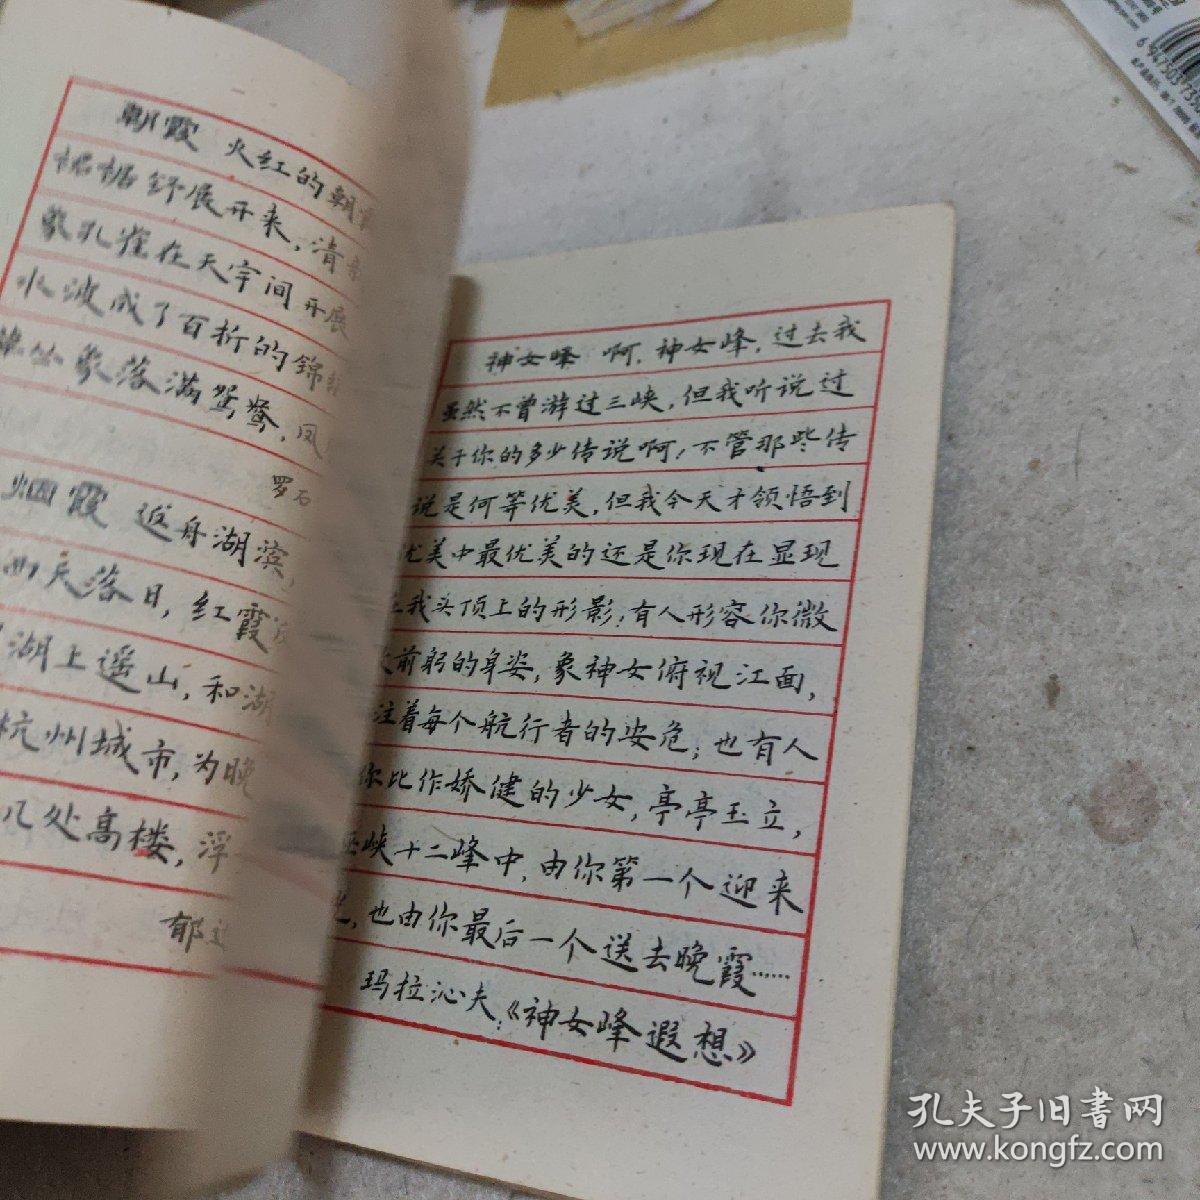 朝霞 火红的朝
裙裾舒展开来,清
象孔雀在天宇间开展
水波成了百折的锦
象落满鸳鸯,凤
罗石
烟霞 返舟湖滨,
西天落日,红霞
湖上遥山,和湖
杭州城市,为晚
几处高楼,浮
郁达
神女峰 啊,神女峰,过去我
虽然不曾游过三峡,但我听说过
关于你的多少传说啊,不管那些传
说是何等优美,但我今天才领悟到
优美中最优美的还是你现在显现
在我头顶上的形影;有人形容你微
前躬的身姿,象神女俯视江面,
注着每个航行者的安危;也有人
你比作娇健的少女,亭亭玉立,
巫峡十二峰中,由你第一个迎来
,也由你最后一个送去晚霞……
玛拉沁夫:《神女峰遐想》
孔夫子旧书网
www.kongfz.com